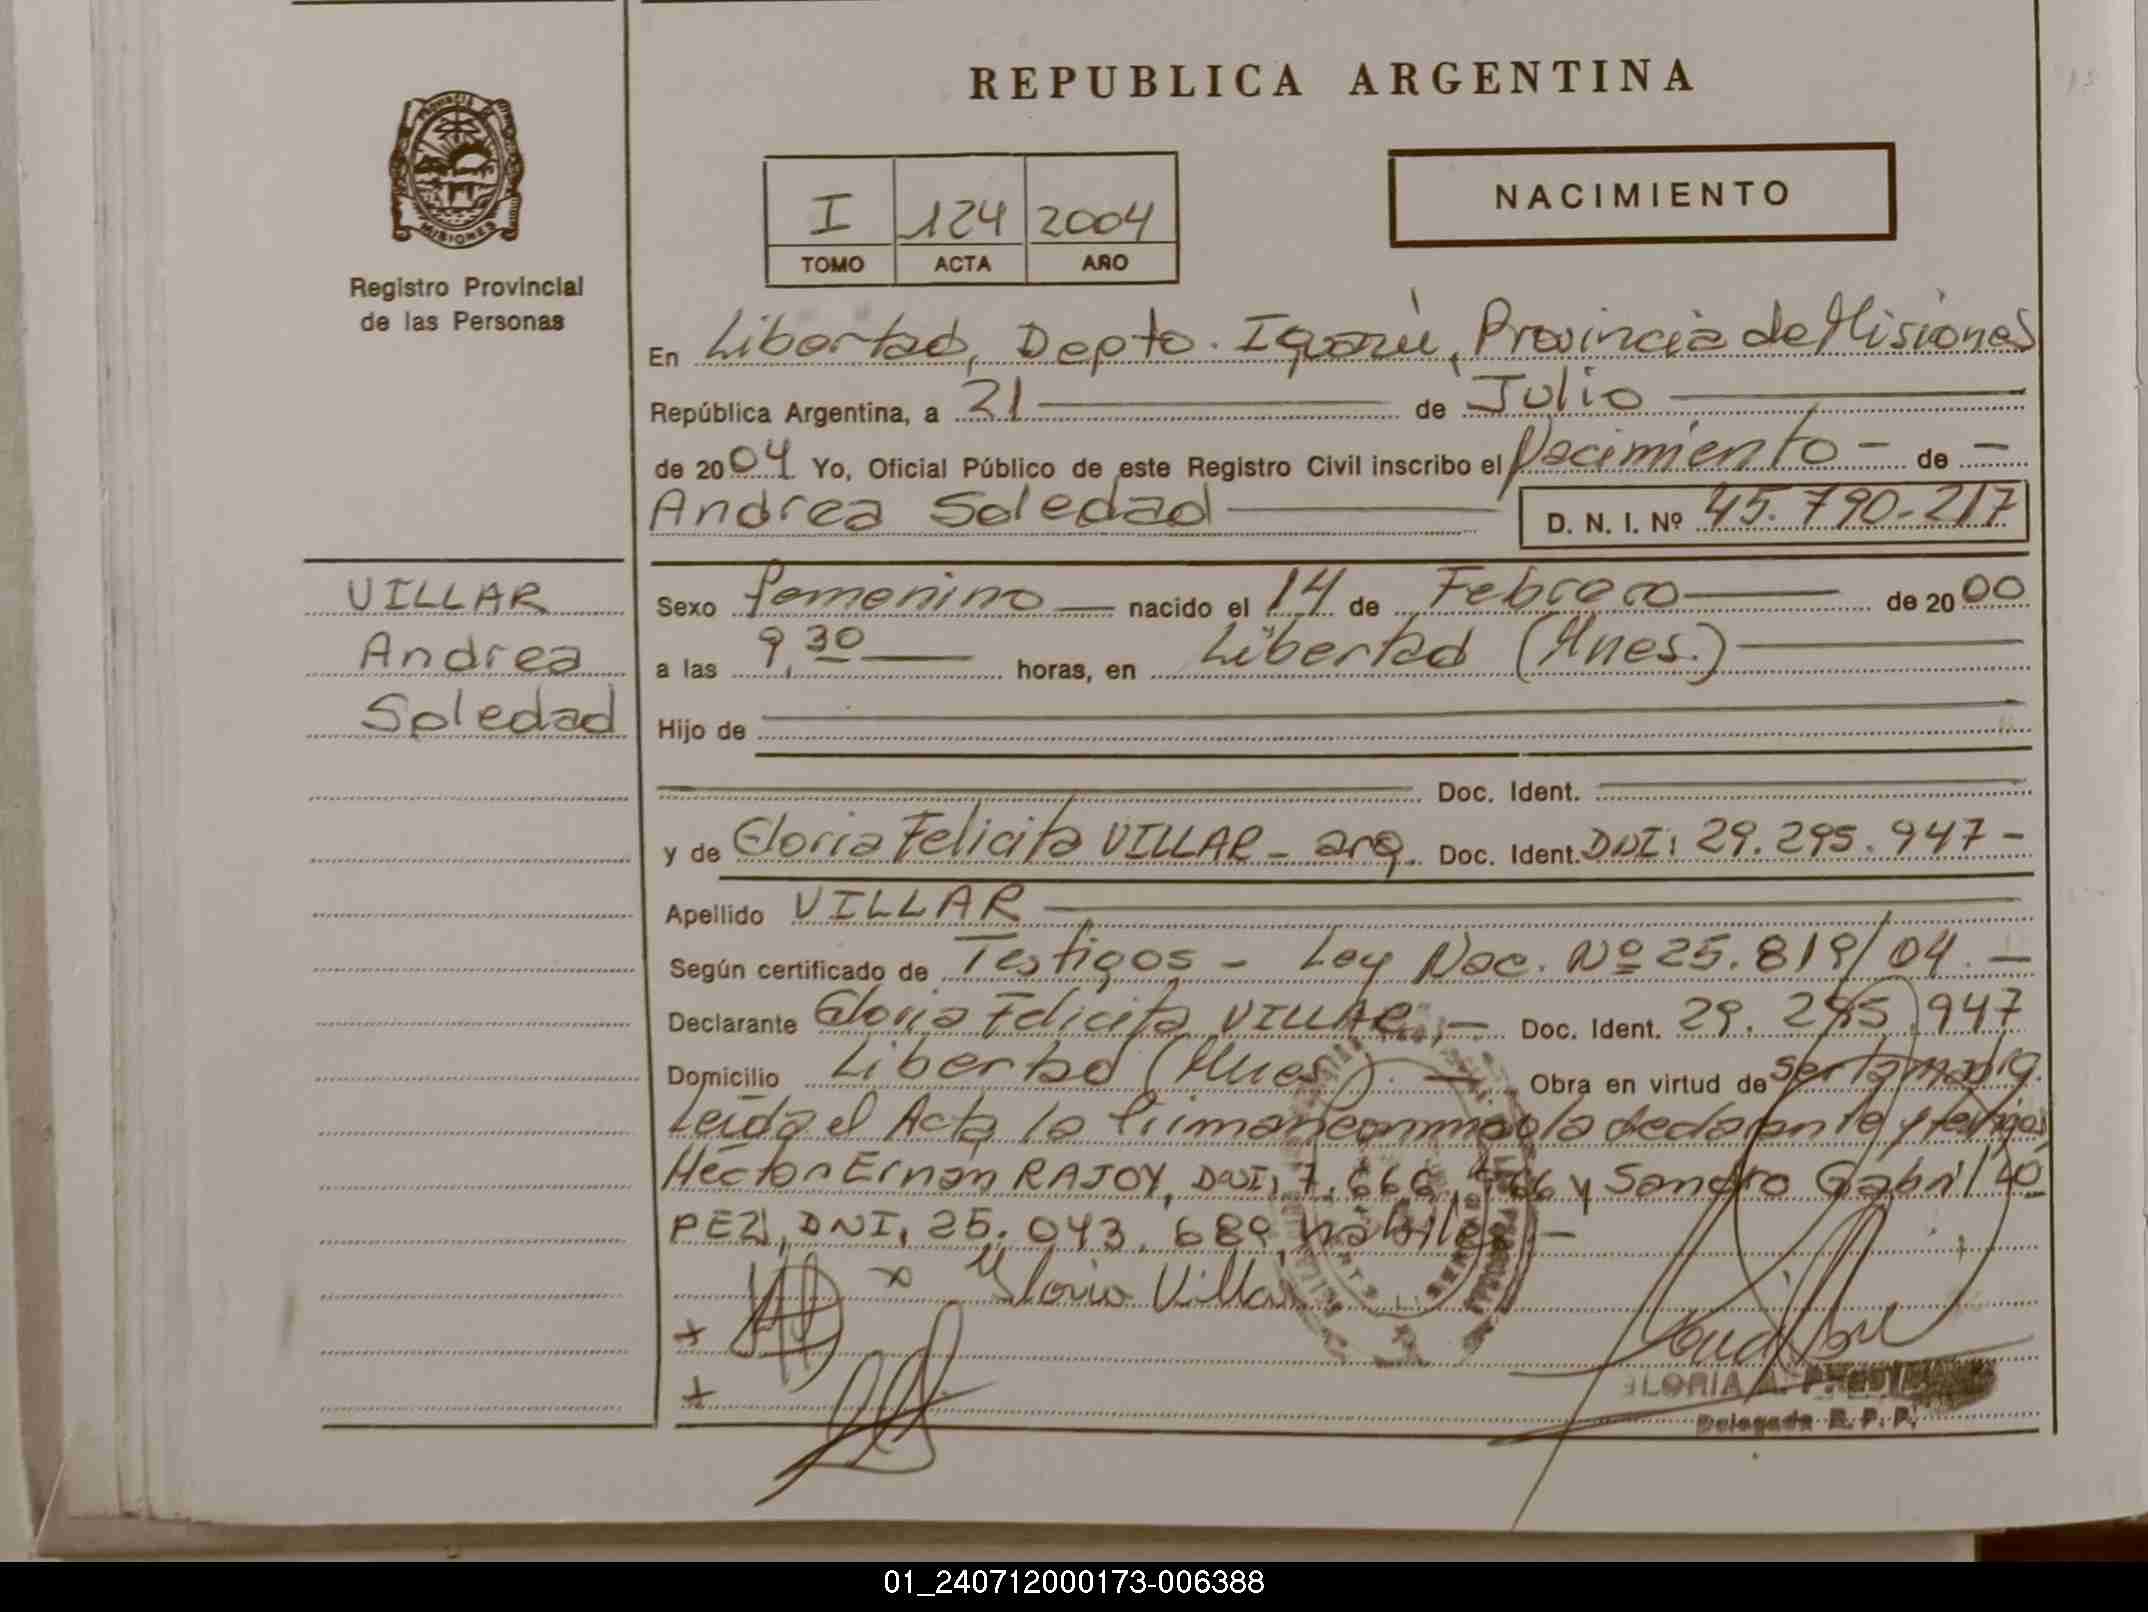 REPUBLICA ARGENTINA
PROVINCIA DE
MISIONES
Registro Provincial
de las Personas
I 124 2004
TOMO ACTA AÑO
NACIMIENTO
En Libertad, Depto. Iguazú, Provincia de Misiones
República Argentina, a 21 de Julio
de 2004 Yo, Oficial Público de este Registro Civil inscribo el Nacimiento - de -
Andrea Soledad
D. N. I. Nº 45.790.217
VILLAR
Andrea
Soledad
Sexo femenino nacido el 14 de Febrero de 2000
a las 9,30 horas, en Libertad (Mnes.)
Hijo de
Doc. Ident.
y de Gloria Felicita VILLAR - arg. Doc. Ident. DNI: 29.295.947 -
Apellido VILLAR
Según certificado de Testigos - Ley Nac. Nº 25.819/04. -
Declarante Gloria Felicita VILLAR, - Doc. Ident. 29.295.947
Domicilio Libertad (Mnes). - Obra en virtud de ser la madre.
Leída el Acta la firman conmigo la declarante y testigos
Héctor Ernan RAJOY, DNI, 7.666. y Sandro Gabril LO
PEZ, DNI, 25.043.689, hábiles. -
x Gloria Villar
+
+
GLORIA A.
Delegada R. P. P.
01_240712000173-006388